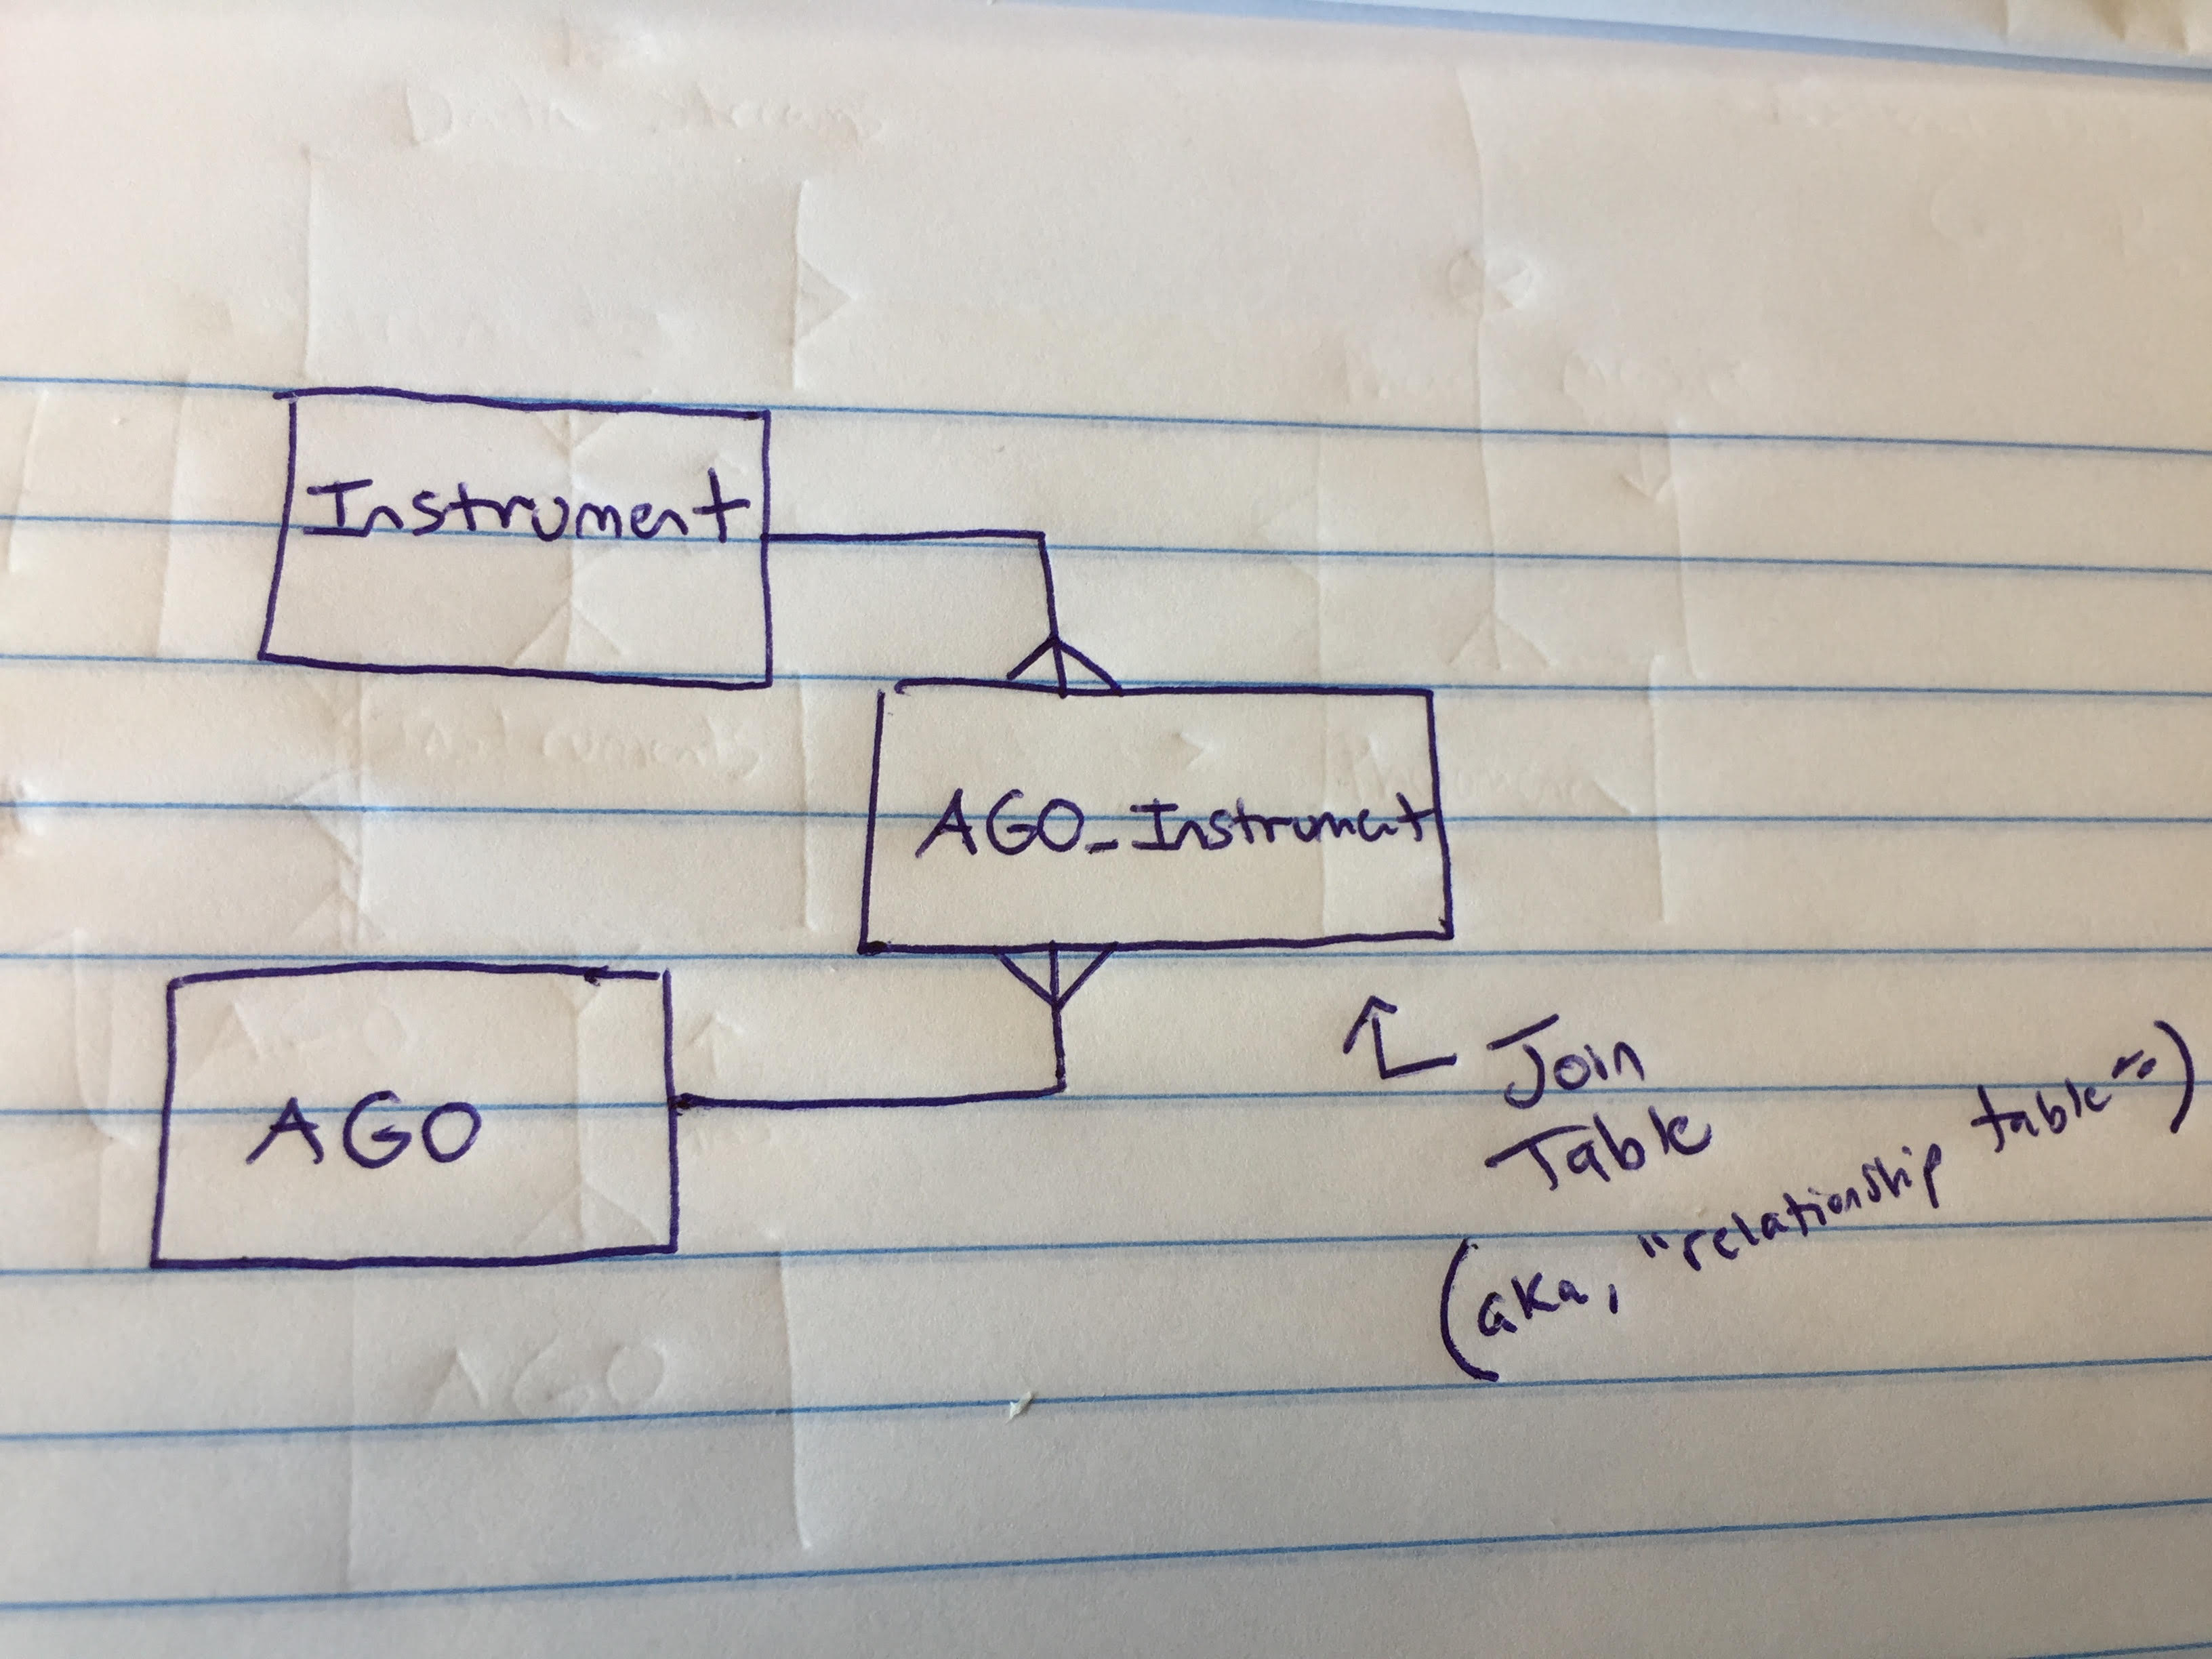 Instrument
AGO_Instrument
AGO
Join
Table
(aka, "relationship table")
AGO